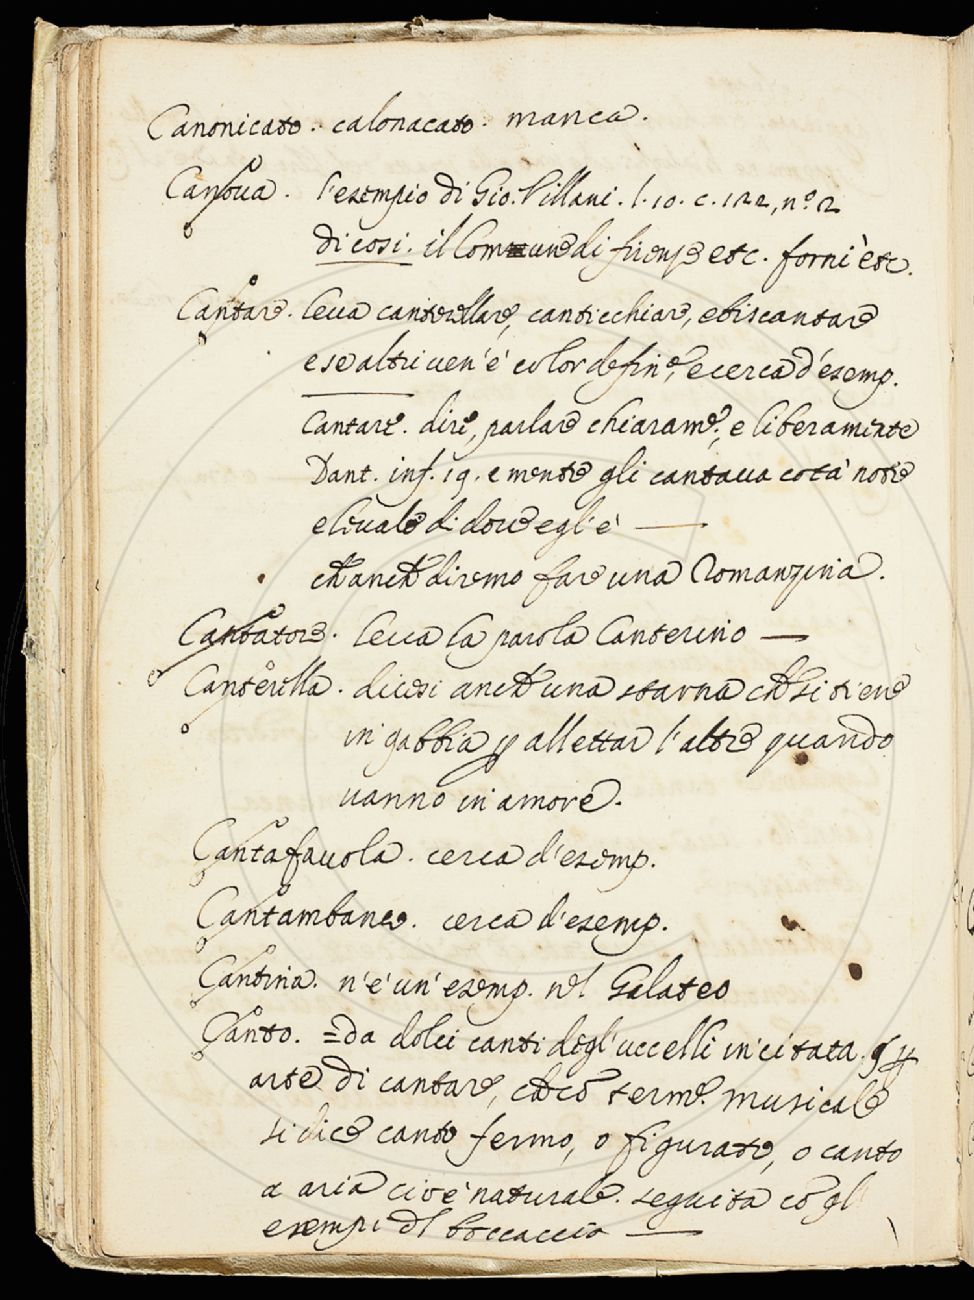 Canonicato. calonacato. manca.
Canova. l'esempio di Gio. Villani. l. 10. c. 122, n.º 2
di cosi. il Comune di firenze etc. forni etc.
Cantare. leva canterellare, canticchiare, e biscantare
e se altri ven'è col or de fine, e cerca d'esemp.
Cantare. dire, parlare chiaram.e, e liberamente
Dant. inf. 19. e mentre gli cantava cota' note
e livale di dove egl'è —
ch anch diremo fare una Romanzina.
Cantatore. leva la parola Canterino —
Canterella. dicesi anch una starna ch si tiene
in gabbia p allettar l'altre quando
vanno in amore.
Cantafavola. cerca d'esemp.
Cantambanco. cerca d'esemp.
Cantina. n'è un' esemp. nel Galateo
Canto. = da dolci canti degl'uccelli incitata.
arte di cantare, ch cō term.e musicale
si dice canto fermo, o figurato, o canto
a aria cioè naturale. seguita cō gl
esempi dl boccaccio —